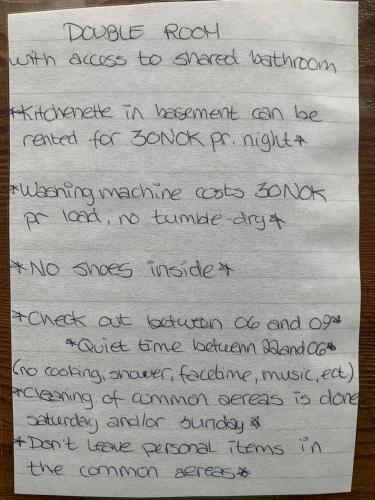 DOUBLE ROOM
with access to shared bathroom
*Kitchenette in basement can be
rented for 30NOK pr. night*
*Washing machine costs 30NOK
pr load, no tumble-dry*
*No shoes inside*
*Check out between 06 and 09*
*Quiet time between 22 and 06*
(no cooking, shower, facetime, music, ect)
*Cleaning of common aereas is done
saturday and/or sunday*
*Don't leave personal items in
the common aereas*